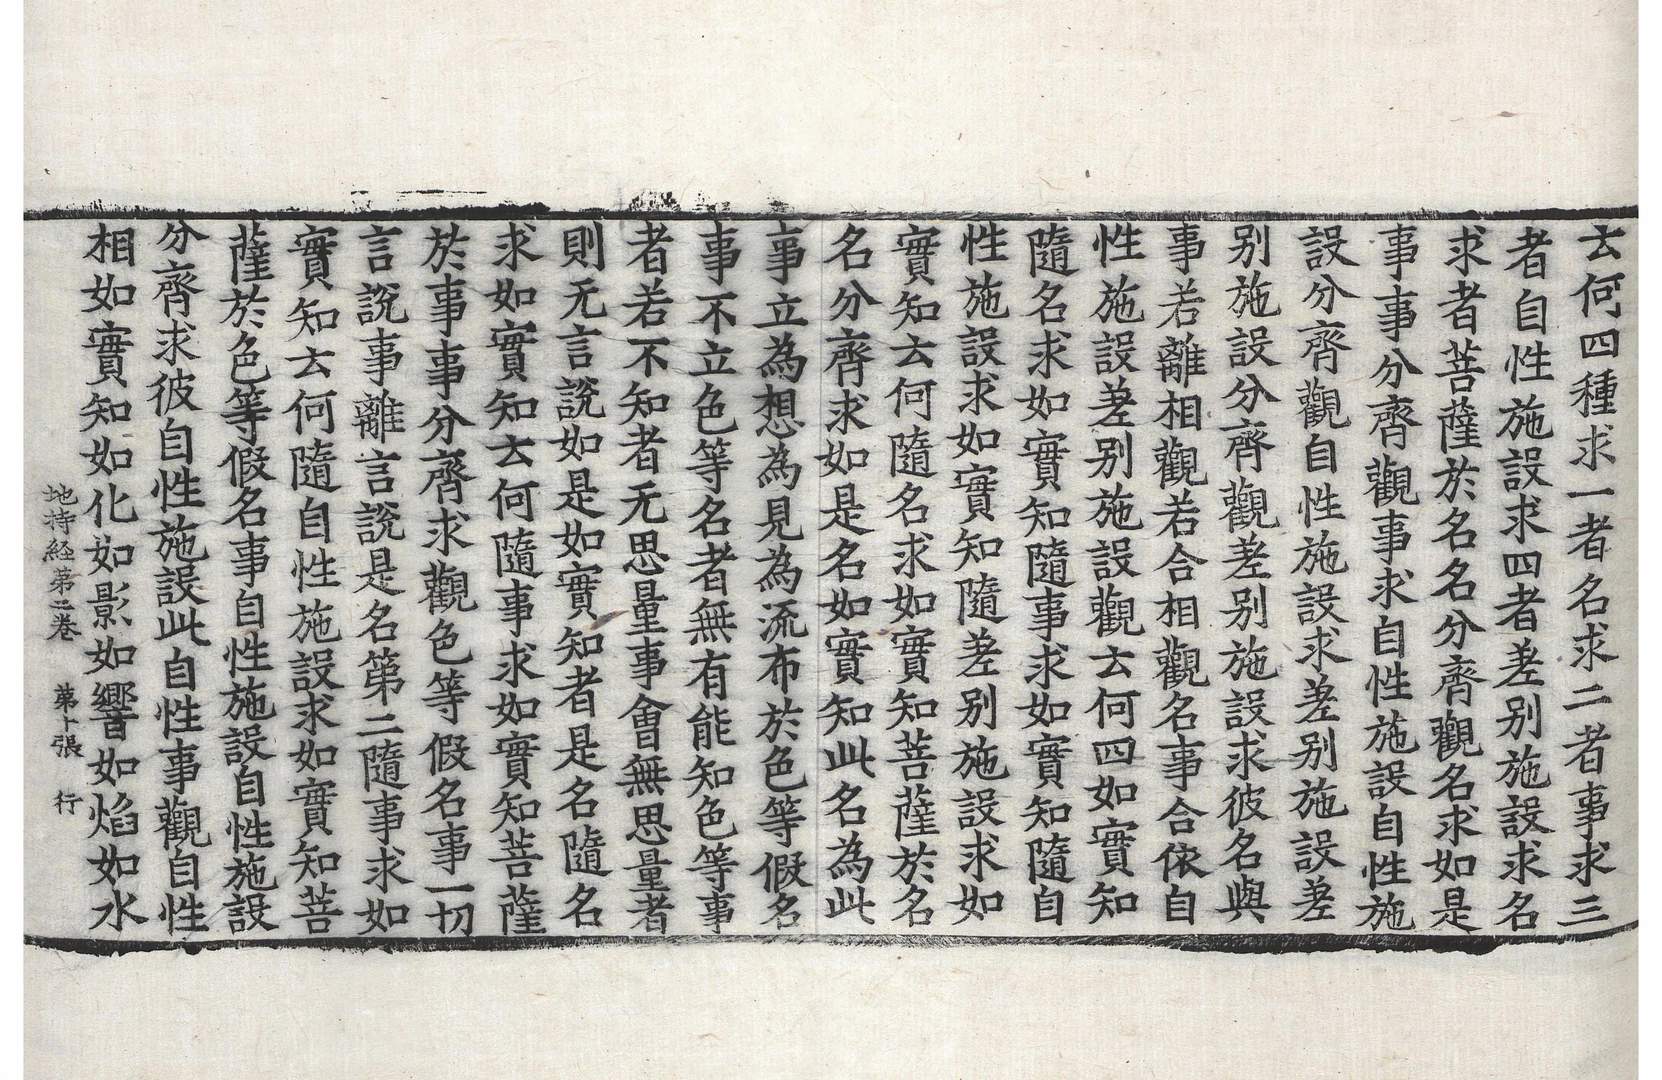 云何四種求一者名求二者事求三
者自性施設求四者差別施設求名
求者菩薩於名名分齊觀名求如是
事事分齊觀事求自性施設自性施
設分齊觀自性施設求差別施設差
別施設分齊觀差別施設求彼名與
事若離相觀若合相觀名事合依自
性施設差別施設觀云何四如實知
隨名求如實知隨事求如實知隨自
性施設求如實知隨差別施設求如
實知云何隨名求如實知菩薩於名
名分齊求如是名如實知此名為此
事立為想為見為流布於色等假名
事不立色等名者無有能知色等事
者若不知者无思量事會無思量者
則无言說如是如實知者是名隨名
求如實知云何隨事求如實知菩薩
於事事分齊求觀色等假名事一切
言說事離言說是名第二隨事求如
實知云何隨自性施設求如實知菩
薩於色等假名事自性施設自性施設
分齊求彼自性施設此自性事觀自性
相如實知如化如影如響如焰如水
地持経第二卷 第十張 行